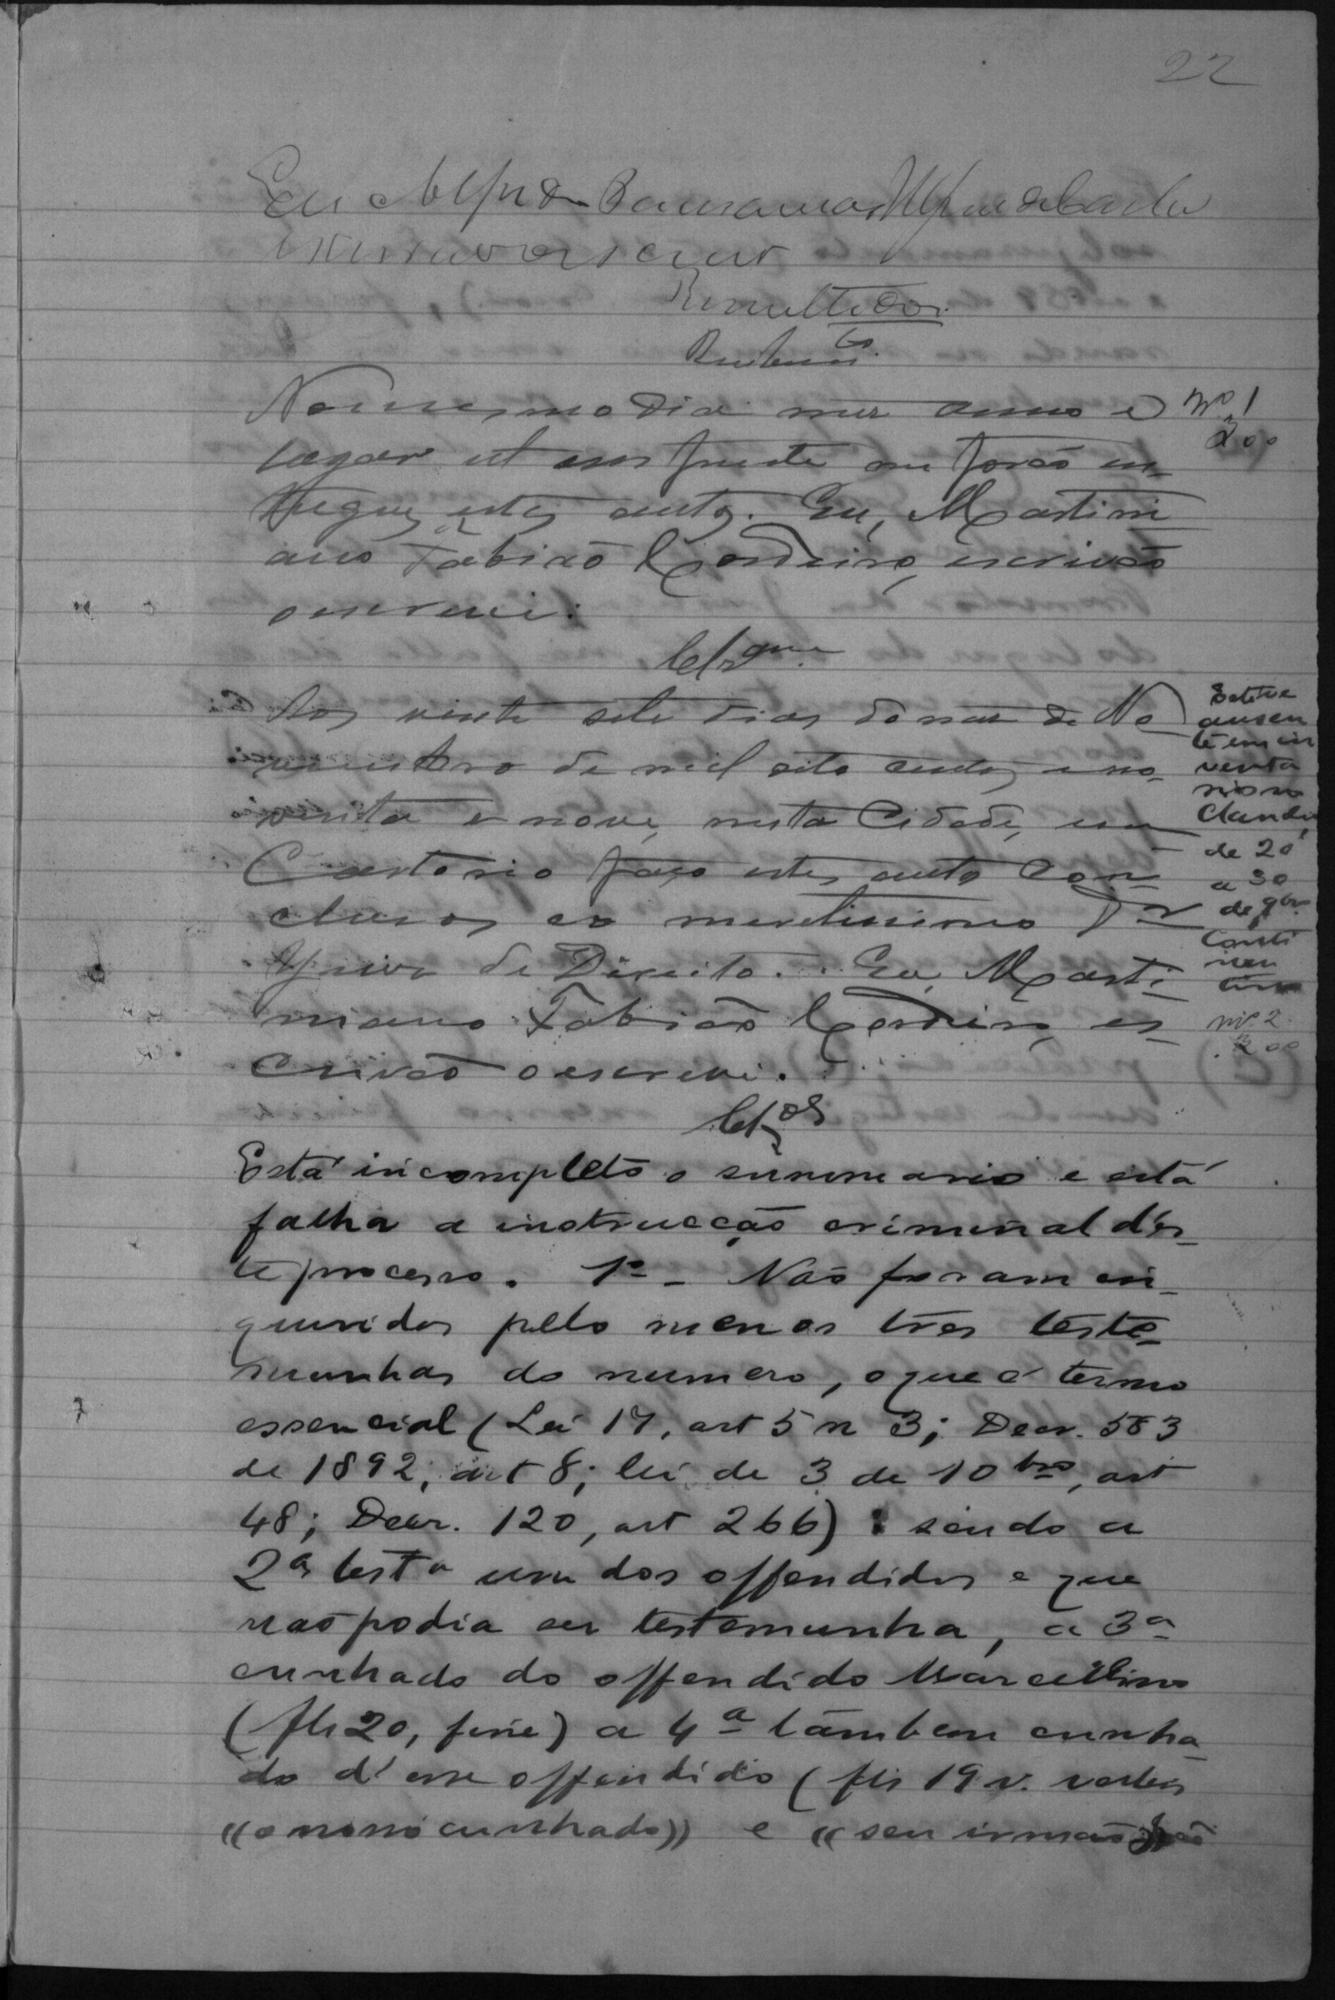 22
Eu Alfredo
escrivão escrevi
Remettidos.
No mesmo dia mez anno e
lugar ut me forão en-
tregues estes autos. Eu, Martini
ano Fabião Cordeiro, escrivão
o escrevi.
nº 1
200
Clsam
Aos vinte sete dias do mez de No
vembro de mil oito centos e no-
venta e nove, nesta Cidade, em
Cartorio faço estes autos con-
clusos ao meretissimo Dr
Juiz de Direito. Eu, Marti-
niano Fabião Cordeiro, es-
crivão o escrevi.
Estive
ausen
te em in
venta
rios no
Claudio
de 20
a 30
de 9bro
nº 2
200
Clsos
Está incompleto o summario e está
falha a instrucção criminal d'es-
te processo. 1º - Não foram in-
queridas pelo menos tres teste-
munhas do numero, o que é termo
essencial (Lei 17, art 5 n 3; Decr. 583
de 1892, art 8; lei de 3 de 10bro, art
48; Decr. 120, art 266) : sendo a
2ª testª um dos offendidos e que
não podia ser testemunha, a 3ª
cunhado do offendido Marcellino
(fls 20, fine) a 4ª tambem cunha-
do d'esse offendido (fls 19 v. verbis
«o nosso cunhado» e «seu irmão»